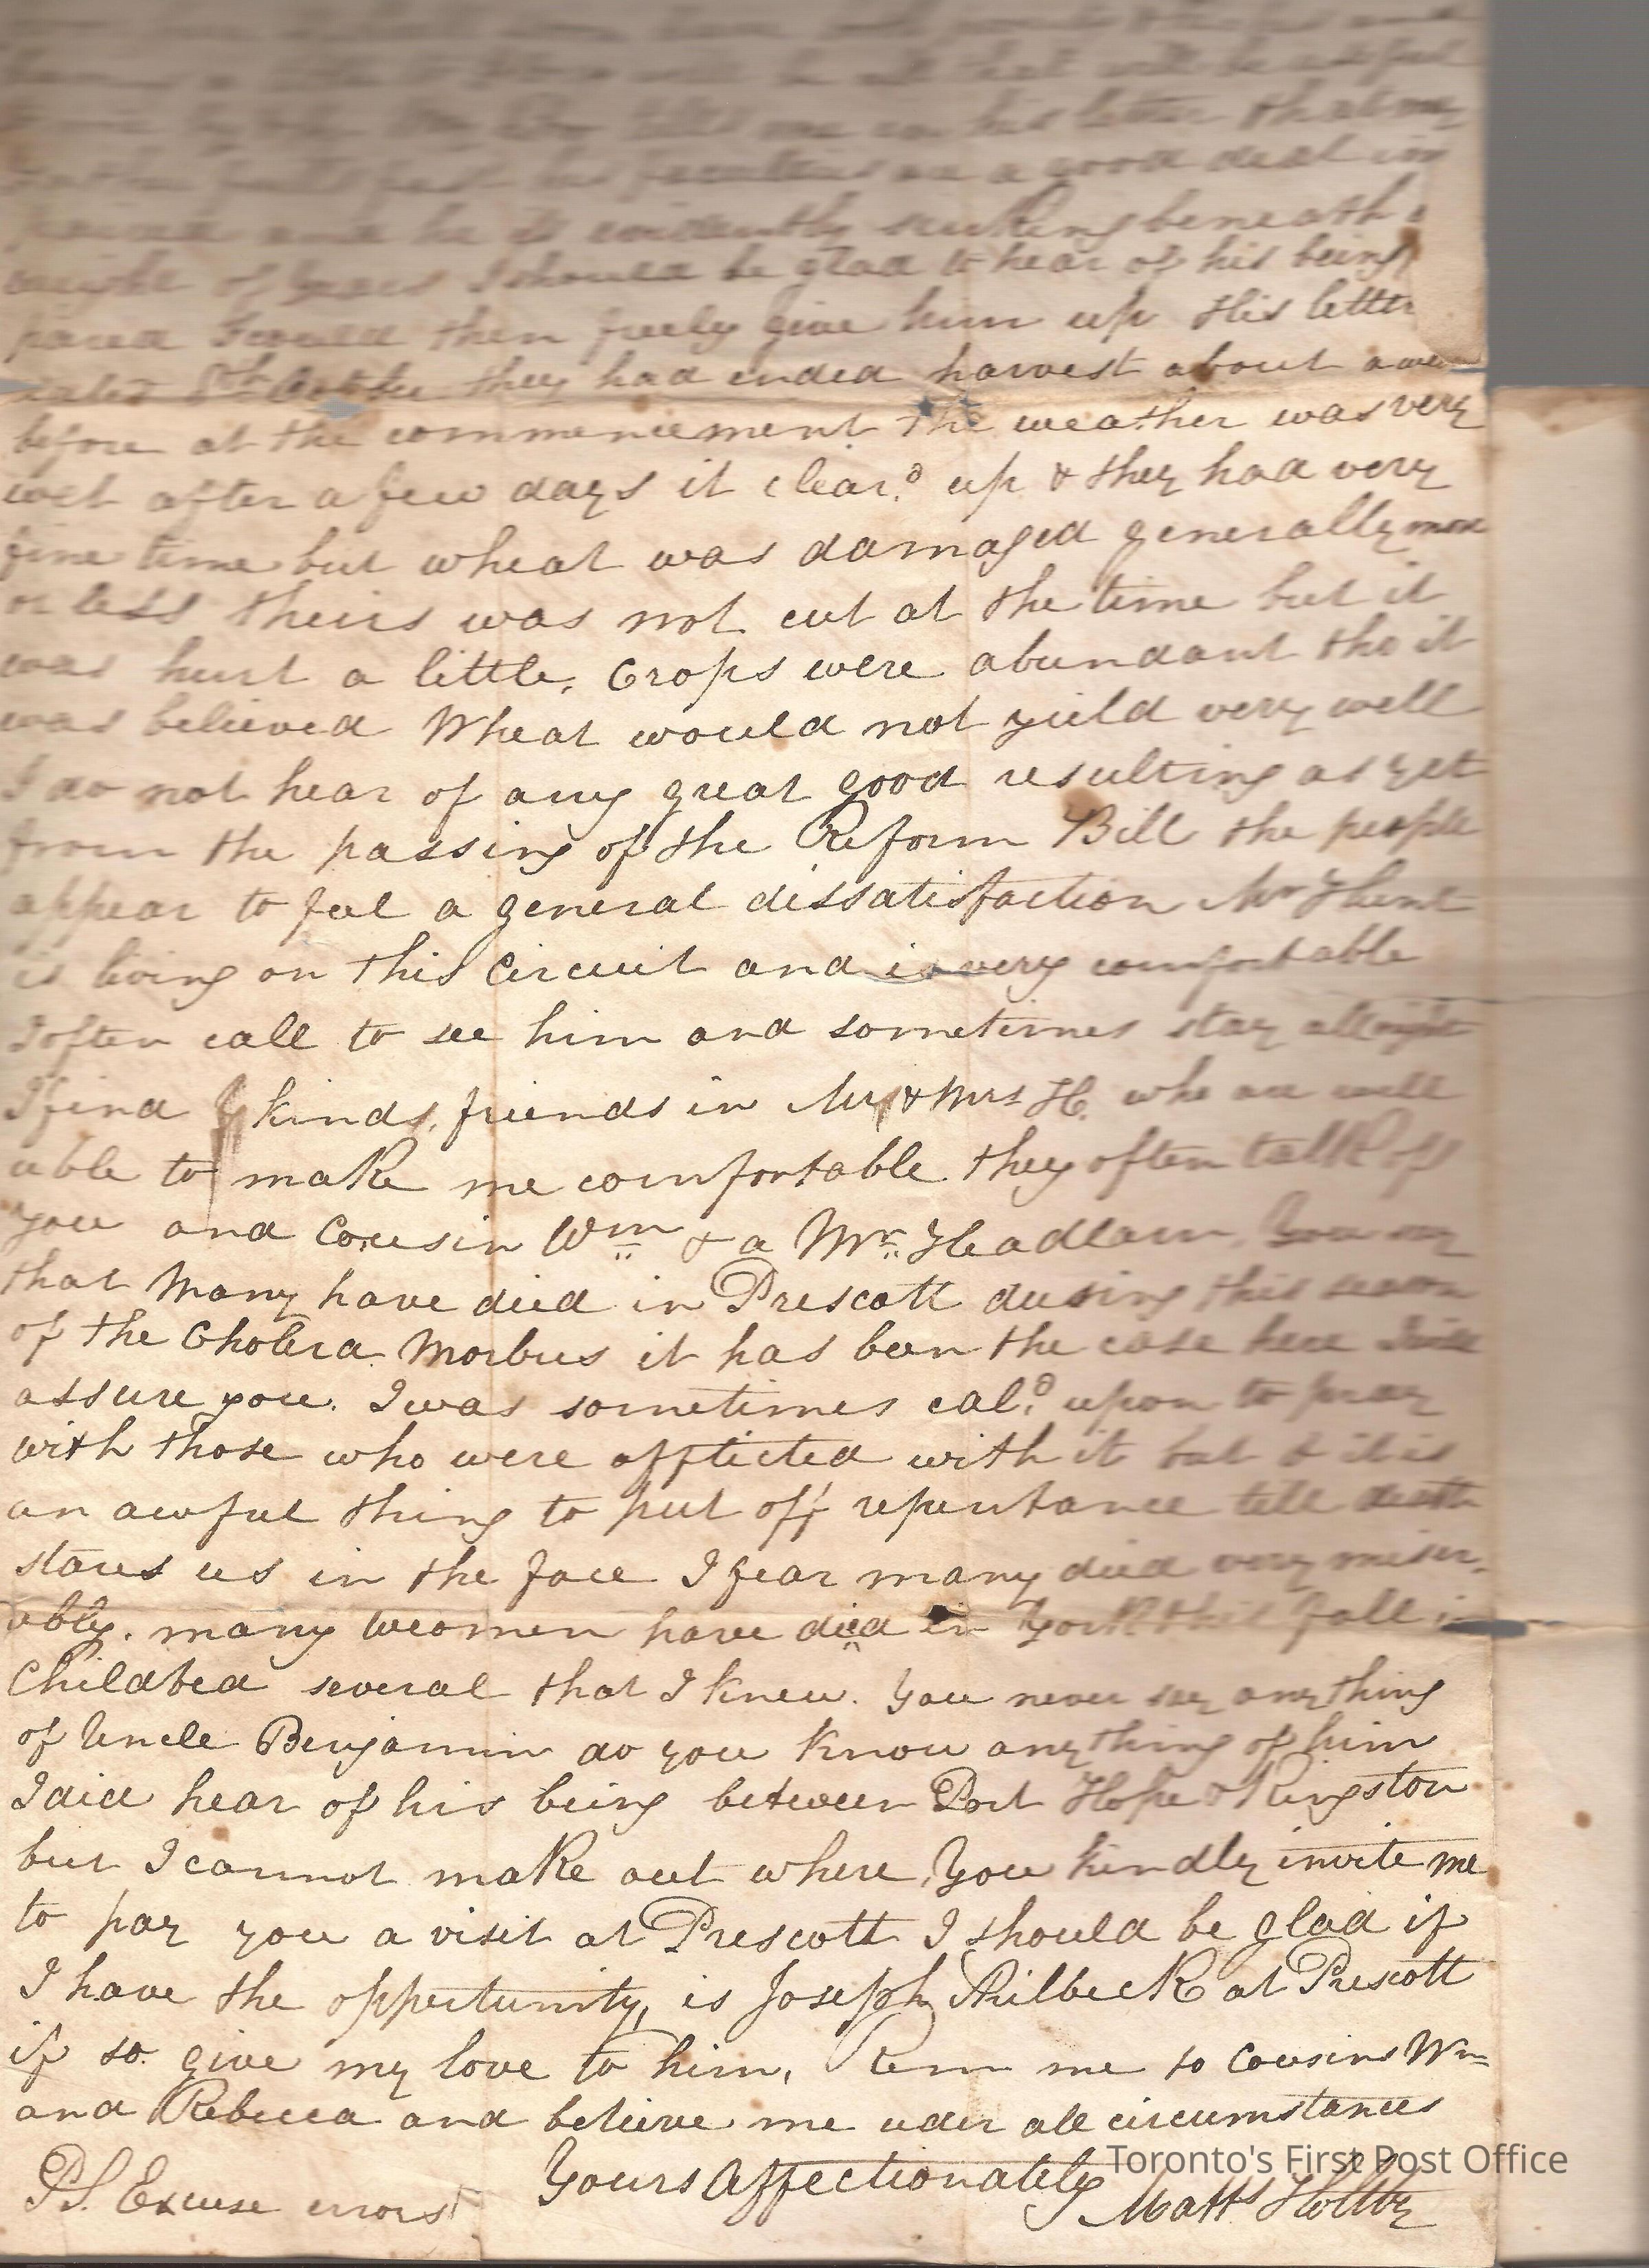 tells me in his letter that my
his faculties are a good deal im
and he is evidently sinking beneath
weight of years I should be glad to hear of his being
pared I could then freely give him up His letter
dated 8th October they had ended harvest about a week
before at the commencement the weather was very
wet after a few days it clear.d up & they had very
fine time but wheat was damaged generally more
or less theirs was not cut at the time but it
was hurt a little, Crops were abundant tho it
was believed Wheat would not yield very well
I do not hear of any great good resulting as yet
from the passing of the Reform Bill the people
appear to feel a general dissatisfaction Mr Hunt
is living on this Circuit and is very comfortable
I often call to see him and sometimes stay all night
I find kind friends in Mr & Mrs H. who are well
able to make me comfortable they often talk of
you and Cousin Wm & a Mr. Headlam, You say
that Many have died in Prescott during this season
of the Cholera Morbus it has been the case here I will
assure you. I was sometimes cal.d upon to pray
with those who were afflicted with it but O it is
an awful thing to put off repentance till death
stares us in the face I fear many died very miser-
ably. many weomen have died in York this fall in
Childbed several that I knew. You never say any thing
of Uncle Benjamin do you know any thing of him
I did hear of his being between Port Hope & Kingston
but I cannot make out where, You kindly invite me
to pay you a visit at Prescott I should be glad if
I have the oppertunity, is Joseph Philbeck at Prescott
if so give my love to him, Rem me to Cousins Wm
and Rebecca and believe me uder all circumstances
Yours Affectionately
Matts Holtby
PS. Excuse errors
Toronto's First Post Office